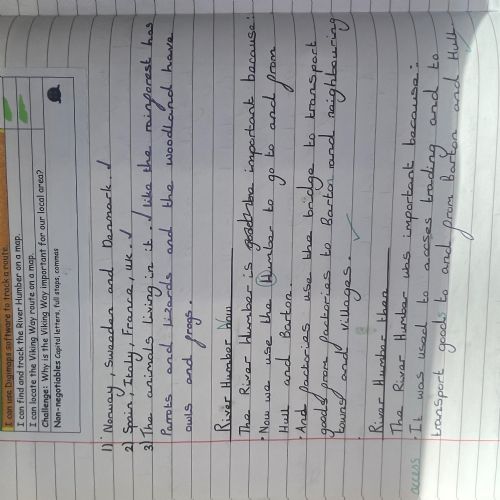 I can use Digimaps software to track a route.
I can find and track the River Humber on a map.
I can locate the Viking Way route on a map.
Challenge: Why is the Viking Way important for our local area?
Non-negotiables Capital letters, full stops, commas
1) Norway, Sweaden and Denmark.
2) Spain, Italy, France, uk.
3) The animals living in it. like the rainforest has
Parrots and lizards and the woodland have
owls and frogs.
River Humber now
The River Humber is be important because:
• Now we use the Humber to go to and from
Hull and Barton.
• And factories use the bridge to transport
goods from factories to Barton and neighbouring
towns and villages.
River Humber then
The River Humber was important because:
• It was used to acsses trading and to
access
transport goods to and from Barton and Hull